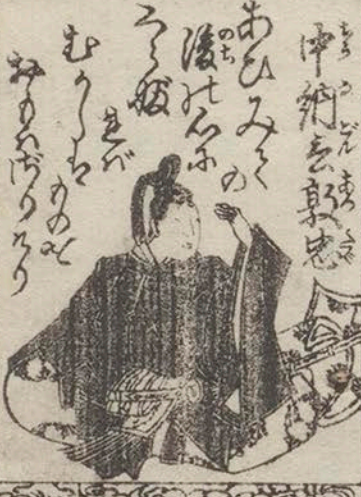 中納言敦忠
あひみての
後の心に
くらぶ
れば
むかしは
ものを
おもはざりけり